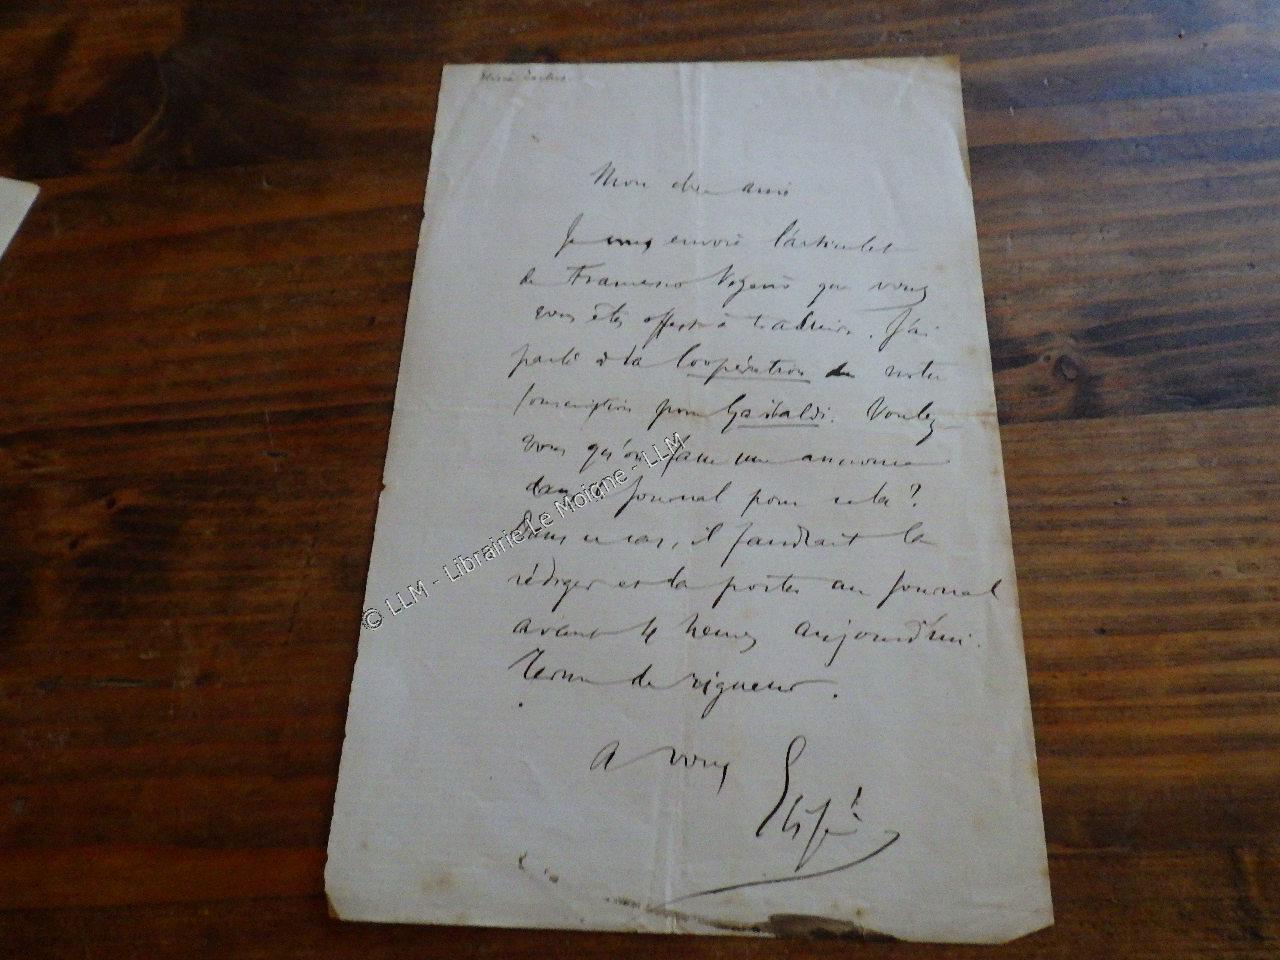 Elisée Reclus.
Mon cher ami
Je vous envoie l'articulet
de Francesco que vous
vous êtes offert à traduire. J'ai
parlé à la Coopération de notre
souscription pour Garibaldi. Voulez
vous qu'on fasse une annonce
dans le journal pour cela?
Dans ce cas, il faudrait la
rédiger et la porter au journal
avant 4 heures aujourd'hui.
Terme de rigueur.
A vous
Elisée
© LLM - Librairie Le Moigne - LLM